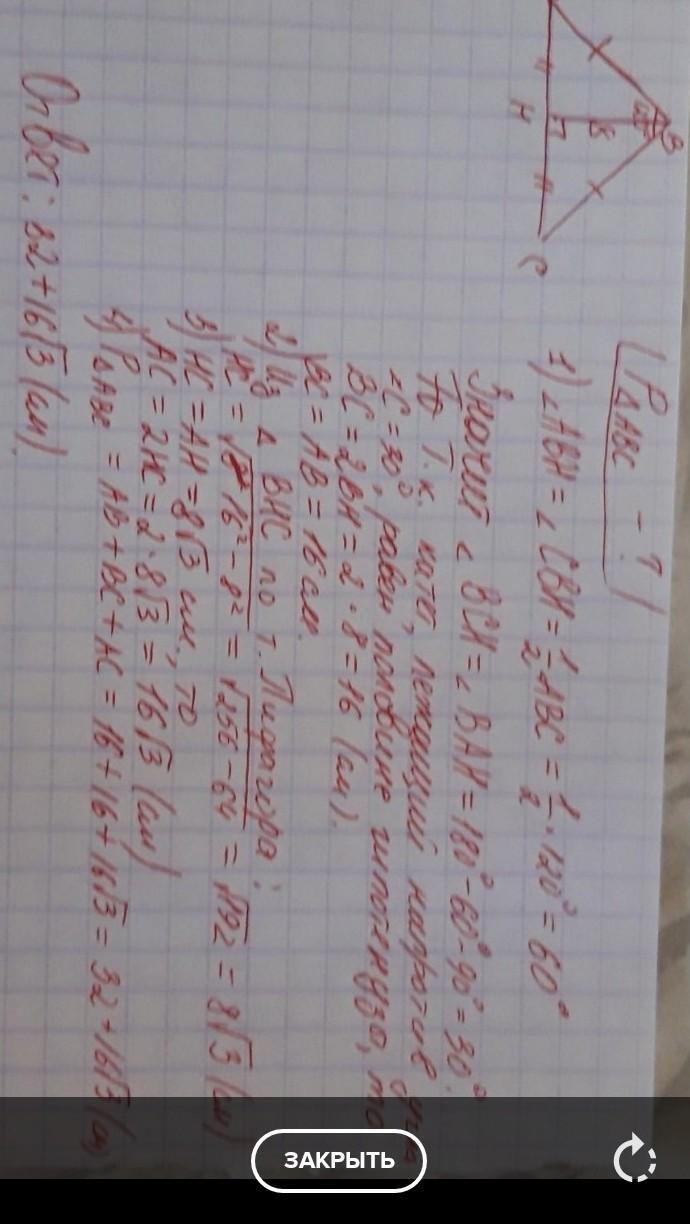 B
120°
8
H
C
P△ABC - ?
1) ∠ABH = ∠CBH = 1/2 ABC = 1/2 · 120° = 60°
Значит ∠BCH = ∠BAH = 180° - 60° - 90° = 30°.
Т.к. катет, лежащий напротив угла
∠C = 30°, равен половине гипотенузы, то
BC = 2BH = 2 · 8 = 16 (см).
BC = AB = 16 см.
2) Из △ BHC по т. Пифагора:
HC = √16² - 8² = √256 - 64 = √192 = 8√3 (см)
3) HC = AH = 8√3 см, то
AC = 2HC = 2 · 8√3 = 16√3 (см)
4) P△ABC = AB + BC + AC = 16 + 16 + 16√3 = 32 + 16√3 (см)
Ответ: 32 + 16√3 (см)
ЗАКРЫТЬ